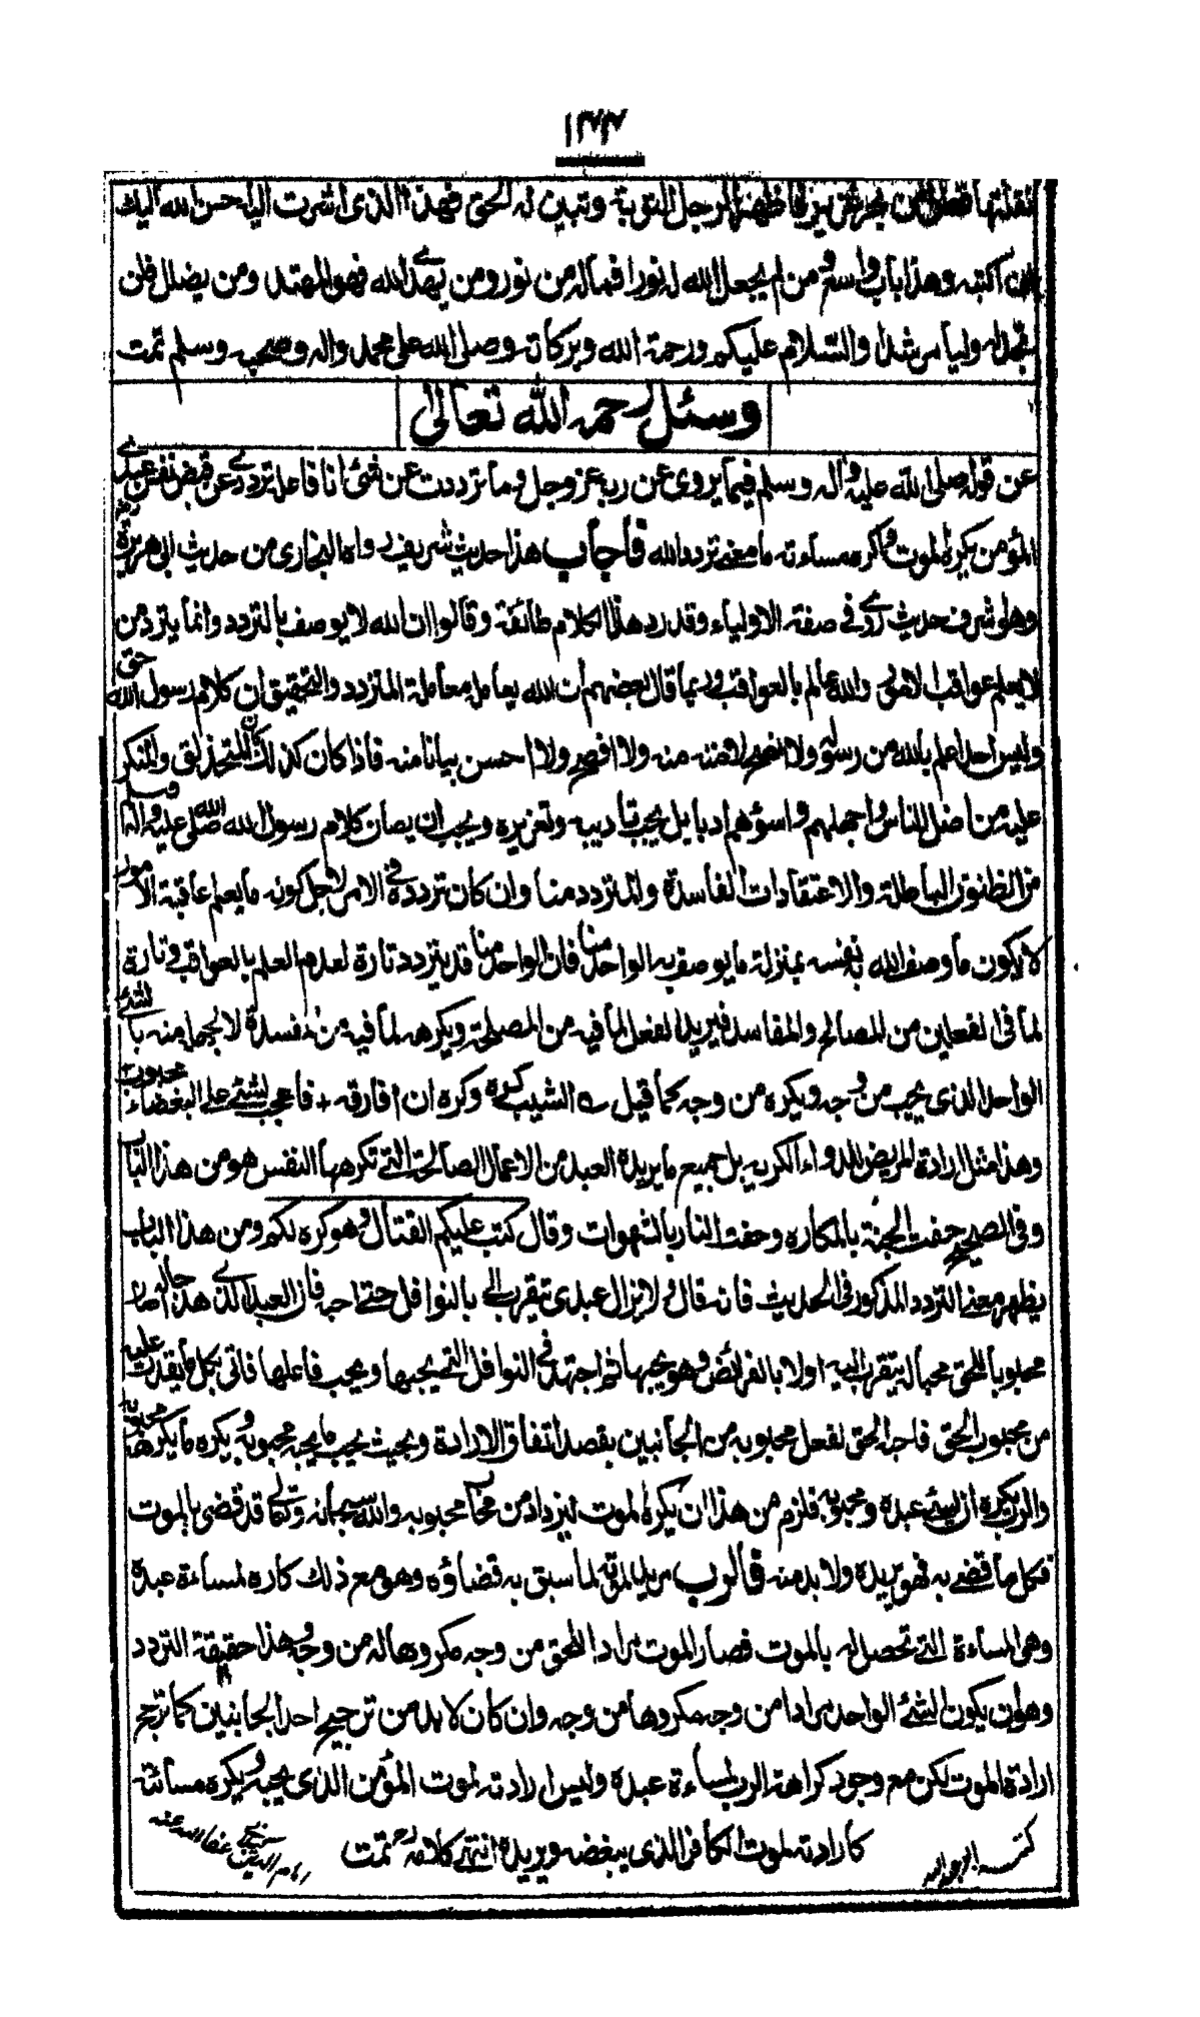 ١٣٣
نقلتها فظهر للرجل التوبة وتبين له الحق فهذا الذى اشرت اليه احسن الله اليك
اكتبه وهذا باب واسع ومن لم يجعل الله له نورا فماله من نور ومن يهدے الله فهو المهتد ومن يضلل فلن
تجد له وليا مرشدا والسلام عليكم ورحمة الله وبركاته وصلى الله على محمد واله وصحبه وسلم تمت
وسئل رحمه الله تعالى
عن قوله صلى الله عليه واله وسلم فيما يروى عن ربه عز وجل وما ترددت عن شئ انا فاعله ترددے عن قبض نفس عبدے
المؤمن يكره الموت واكره مساءته ما معنے تردد الله فأجاب هذا حديث شريف رواه البخارى من حديث ابى هريرة رضے
وهو اشرف حديث روے فى صفة الاولياء وقد رد هذا الكلام طائفة وقالوا ان الله لا يوصف بالتردد وانما يتردد من
لا يعلم عواقب الامور والله عالم بالعواقب وربما قال بعضهم ان الله يعامل معاملة المتردد والتحقيق ان كلام رسول الله حق
وليس احد اعلم بالله من رسوله ولا انصح لامته منه ولا افصح ولا احسن بيانا منه فاذا كان كذلك كان المتحذلق والمنكر
عليه من اضل الناس واجهلهم واسوءهم ادبا بل يجب تاديبه وتعزيره ويجب ان يصان كلام رسول الله صلى الله عليه واله وسلم
من الظنون الباطلة والاعتقادات الفاسدة والمتردد منا وان كان تردده فى الامر لاجل كونه ما يعلم عاقبة الامور
لا يكون ما وصف الله به نفسه بمنزلة ما يوصف به الواحد منا فان الواحد منا قد يتردد تارة لعدم العلم بالعواقب وتارة
لما فى الفعلين من المصالح والمفاسد فيريد الفعل لما فيه من المصلحة ويكرهه لما فيه من المفسدة لا لجهله منه بالشئ
الواحد الذى يحب من وجه ويكره من وجه كما قيل ؎ الشيب كره وكره ان افارقه + فاعجب لشئ على البغضاء محبوب +
وهذا مثل ارادة المريض للدواء الكريه بل جميع ما يريده العبد من الاعمال الصالحة التے تكرهها النفس هو من هذا الباب
وفى الصحيح حفت الجنة بالمكاره وحفت النار بالشهوات وقال كتب عليكم القتال وهو كره لكم ومن هذا الباب
يظهر معنے التردد المذكور فى الحديث فانه قال ولا يزال عبدى يتقرب الى بالنوافل حتے احبه فان العبد الذے هذا حاله صار
محبوبا للحق محبا له يتقرب اليه اولا بالفرائض وهو يحبها ثم اجتهد فى النوافل التے يحبها ويحب فاعلها فاتى بكل ما يقدر عليه
من محبوب الحق فاحبه الحق لفعل محبوبه من الجانبين بقصد اتفاق الارادة وبحيث يحب ما يحبه محبوبه ويكره ما يكرهه محبوبه
والرب يكره ان يسئ عبده ومحبوبه فلزم من هذا ان يكره الموت ليزداد من محاب محبوبه والله سبحانه وتعالى قد قضى بالموت
فكل ما قضے به فهو يريده ولا بد منه فالرب مريد لموته لما سبق به قضاؤه وهو مع ذلك كاره لمساءة عبده
وهى المساءة التے تحصل له بالموت فصار الموت مرادا للحق من وجه مكروها له من وجه وهذا حقيقة التردد
وهو ان يكون الشئ الواحد مرادا من وجه مكروها من وجه وان كان لا بد من ترجيح احد الجانبين كما ترجح
ارادة الموت لكن مع وجود كراهة الرب لمساءة عبده وليس ارادته لموت المؤمن الذى يحبه ويكره مساءته
كارادته لموت الكافر الذى يبغضه ويريده انتهے كلامه رح تمت